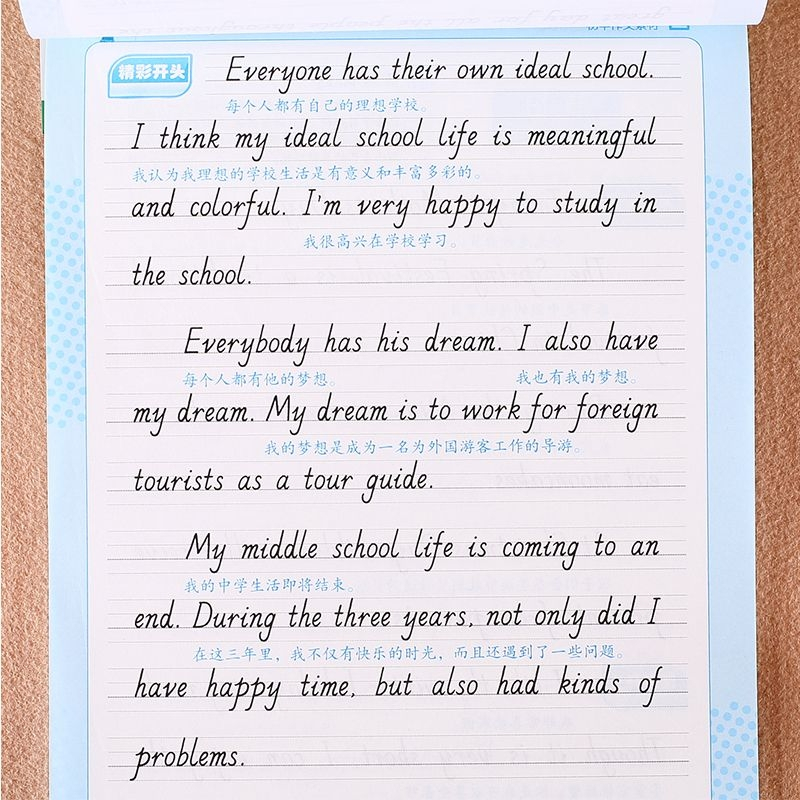 精彩开头
Everyone has their own ideal school.
每个人都有自己的理想学校。
I think my ideal school life is meaningful
我认为我理想的学校生活是有意义和丰富多彩的。
and colorful. I'm very happy to study in
我很高兴在学校学习。
the school.
Everybody has his dream. I also have
每个人都有他的梦想。 我也有我的梦想。
my dream. My dream is to work for foreign
我的梦想是成为一名为外国游客工作的导游。
tourists as a tour guide.
My middle school life is coming to an
我的中学生活即将结束。
end. During the three years, not only did I
在这三年里，我不仅有快乐的时光，而且还遇到了一些问题。
have happy time, but also had kinds of
problems.